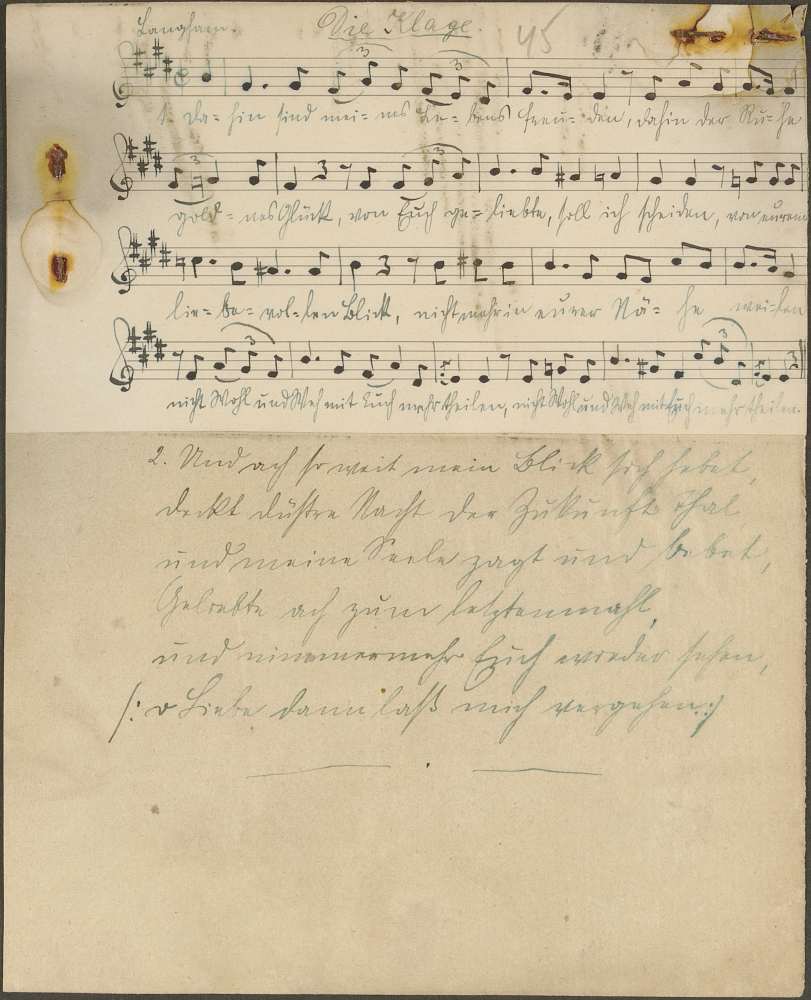 Langsam. Die Klage. 45
1. Da=hin sind mei=nes Le=bens Freu=den, dahin der Ru=he
gold=nes Glück, von Euch ge=liebte, soll ich scheiden, von eurem
lie=be=vol=len Blick, nicht mehr in eurer Nä=he weilen
nicht Wohl und Weh mit Euch mehr theilen, nicht Wohl und Weh mit Euch mehr theilen.
2. Und ach so weit mein Blick sich hebet,
deckt düstre Nacht der Zukunft Thal,
und meine Seele zagt und bebet,
Geliebte ach zum letztenmahl,
und nimmermehr Euch wieder sehen,
/: o Liebe dann laß mich vergehen :/